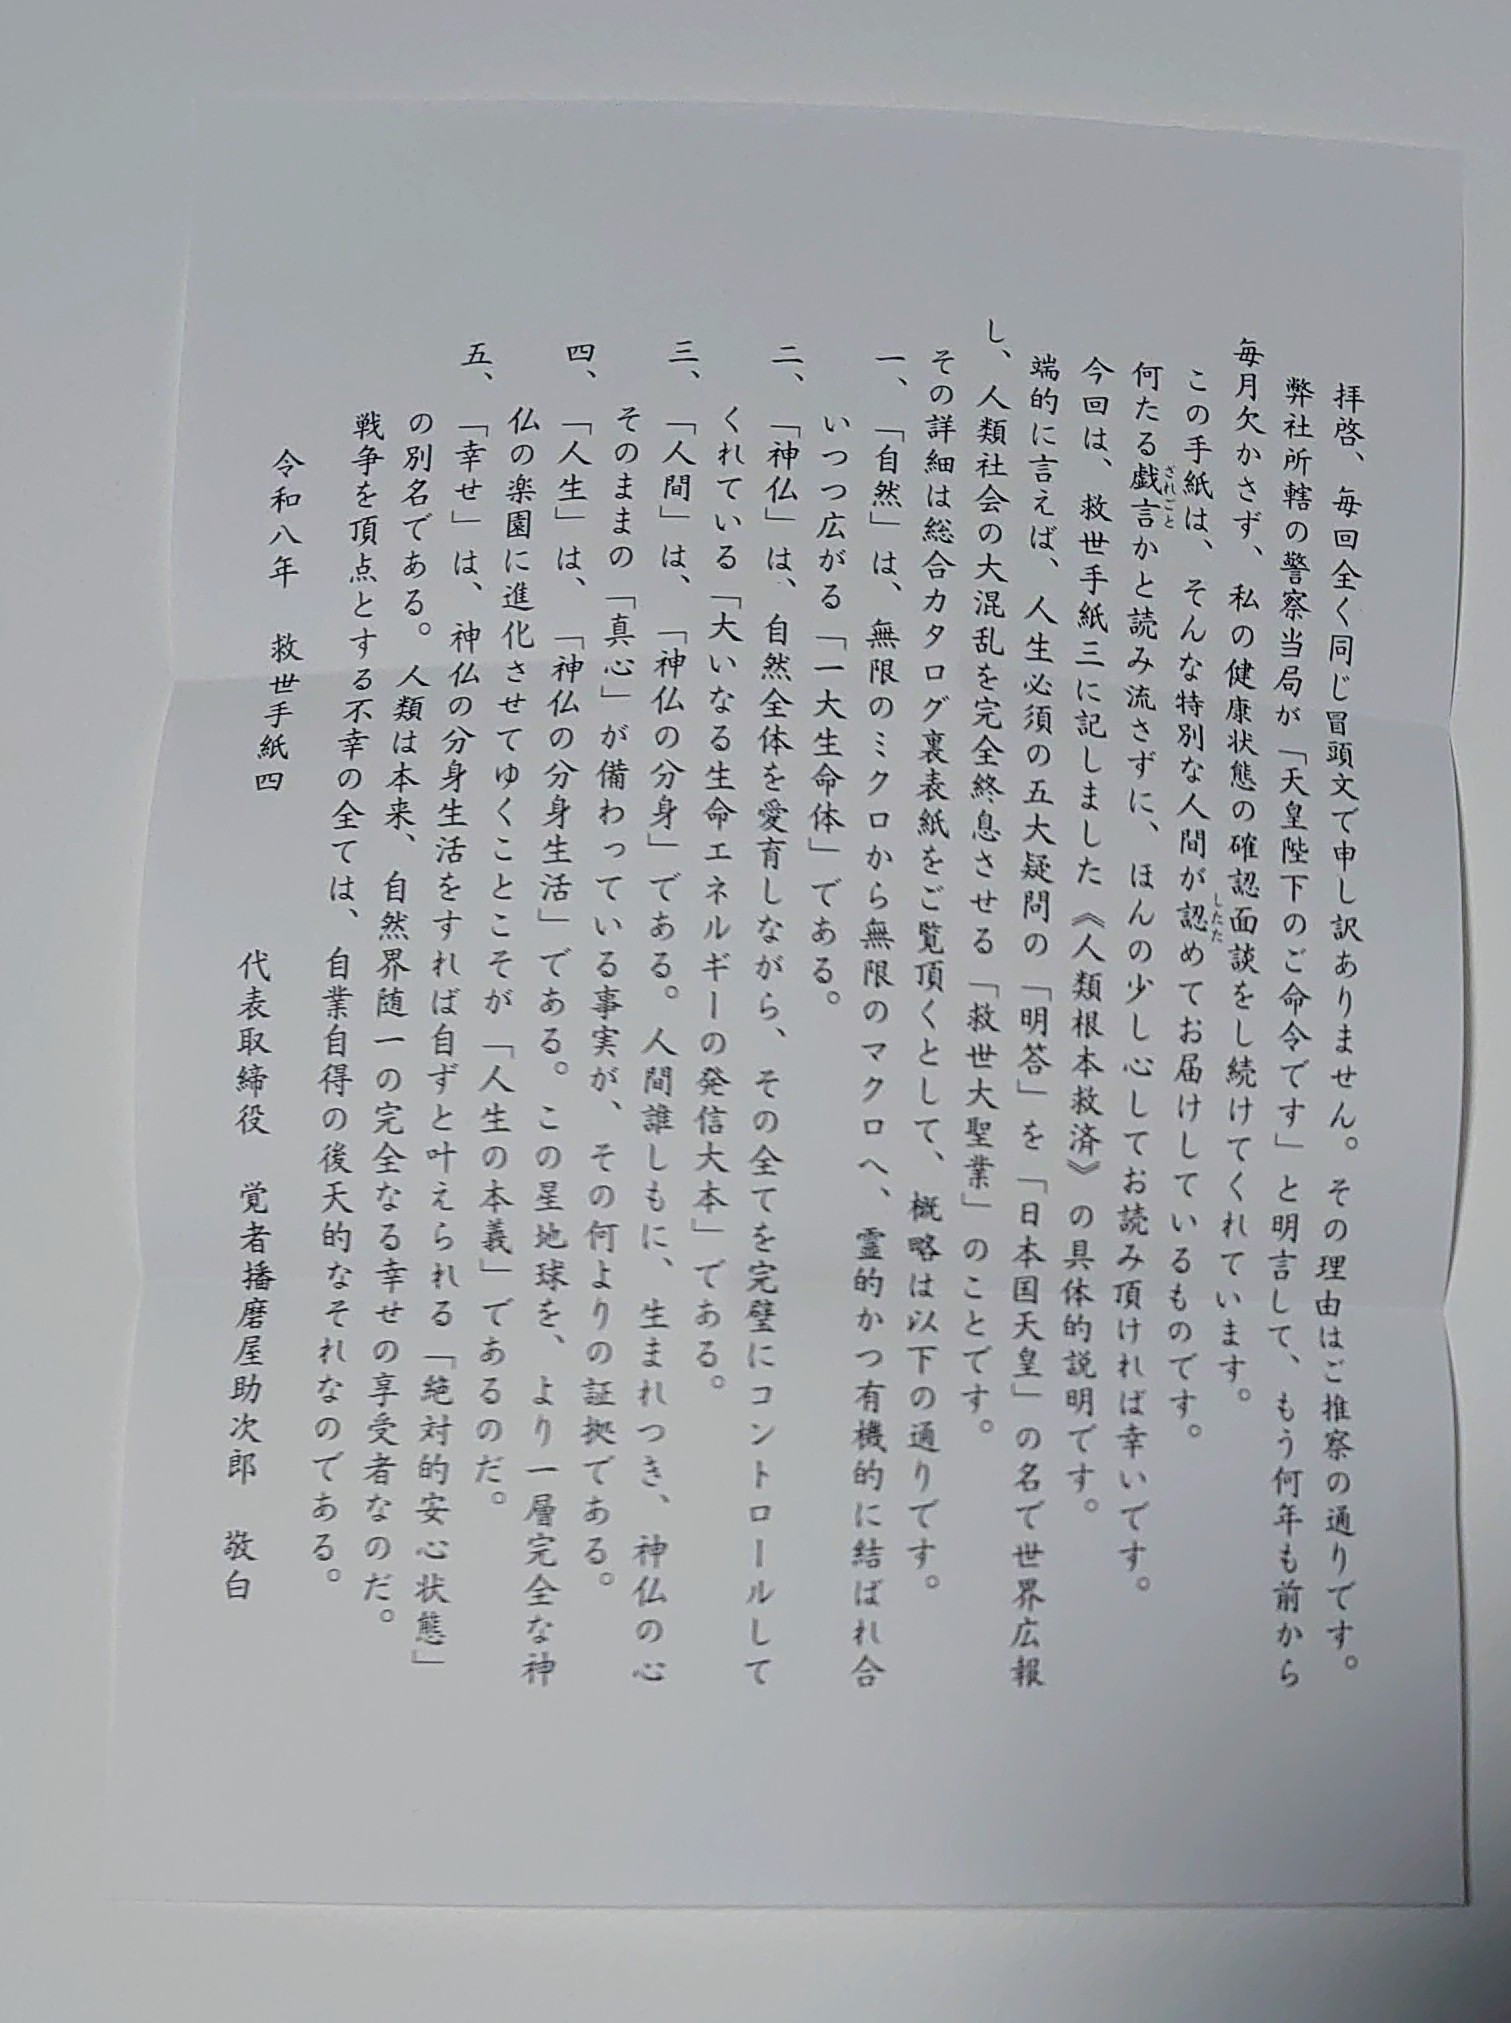 拝啓、毎回全く同じ冒頭文で申し訳ありません。その理由はご推察の通りです。
弊社所轄の警察当局が「天皇陛下のご命令です」と明言して、もう何年も前から
毎月欠かさず、私の健康状態の確認面談をし続けてくれています。
この手紙は、そんな特別な人間が認めてお届けしているものです。
したた
何たる戯言かと読み流さずに、ほんの少し心してお読み頂ければ幸いです。
ざれごと
今回は、救世手紙三に記しました《人類根本救済》の具体的説明です。
端的に言えば、人生必須の五大疑問の「明答」を「日本国天皇」の名で世界広報
し、人類社会の大混乱を完全終息させる「救世大聖業」のことです。
その詳細は総合カタログ裏表紙をご覧頂くとして、概略は以下の通りです。
一、「自然」は、無限のミクロから無限のマクロへ、霊的かつ有機的に結ばれ合
いつつ広がる「一大生命体」である。
二、「神仏」は、自然全体を愛育しながら、その全てを完璧にコントロールして
くれている「大いなる生命エネルギーの発信大本」である。
三、「人間」は、「神仏の分身」である。人間誰しもに、生まれつき、神仏の心
そのままの「真心」が備わっている事実が、その何よりの証拠である。
四、「人生」は、「神仏の分身生活」である。この星地球を、より一層完全な神
仏の楽園に進化させてゆくことこそが「人生の本義」であるのだ。
五、「幸せ」は、神仏の分身生活をすれば自ずと叶えられる「絶対的安心状態」
の別名である。人類は本来、自然界随一の完全なる幸せの享受者なのだ。
戦争を頂点とする不幸の全ては、自業自得の後天的なそれなのである。
令和八年　救世手紙四
代表取締役　覚者播磨屋助次郎　敬白